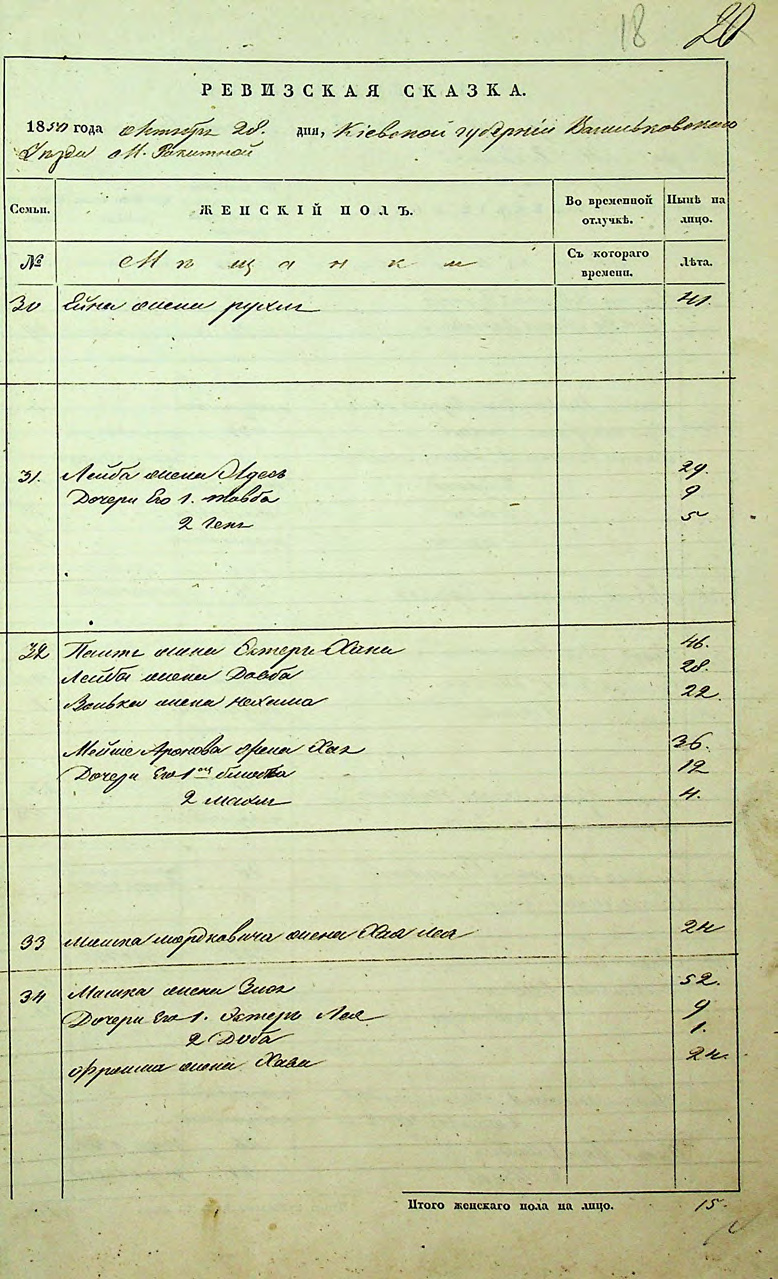 18 20
РЕВИЗСКАЯ СКАЗКА.
1850 года октября 28. дня, Кіевской губерніи Васильковскаго
Уезда М. Ракитной
Семьи. ЖЕНСКІЙ ПОЛЪ. Во временной отлучкѣ. Нынѣ на лицо.
№ Мѣщанки Съ котораго времени. Лѣта.
30 жена Рухля 41.
31. Лейба жена 29.
Дочери Его 1. 9
2 Геня 5
32 жена Эстеръ Хана 46.
Лейбы жена Доба 28.
Волька жена Нехама 22.
Мейше Аронова жена Хая 36.
Дочери Его 1 12
2 Махля 4.
33 Мошка Мордковича жена Хая Лея 24
34 Мошка жена Злота 52.
Дочери Его 1. Эстеръ Лея 9
2 Доба 1.
Фроима жена Хава 24.
Итого женскаго пола на лицо. 15